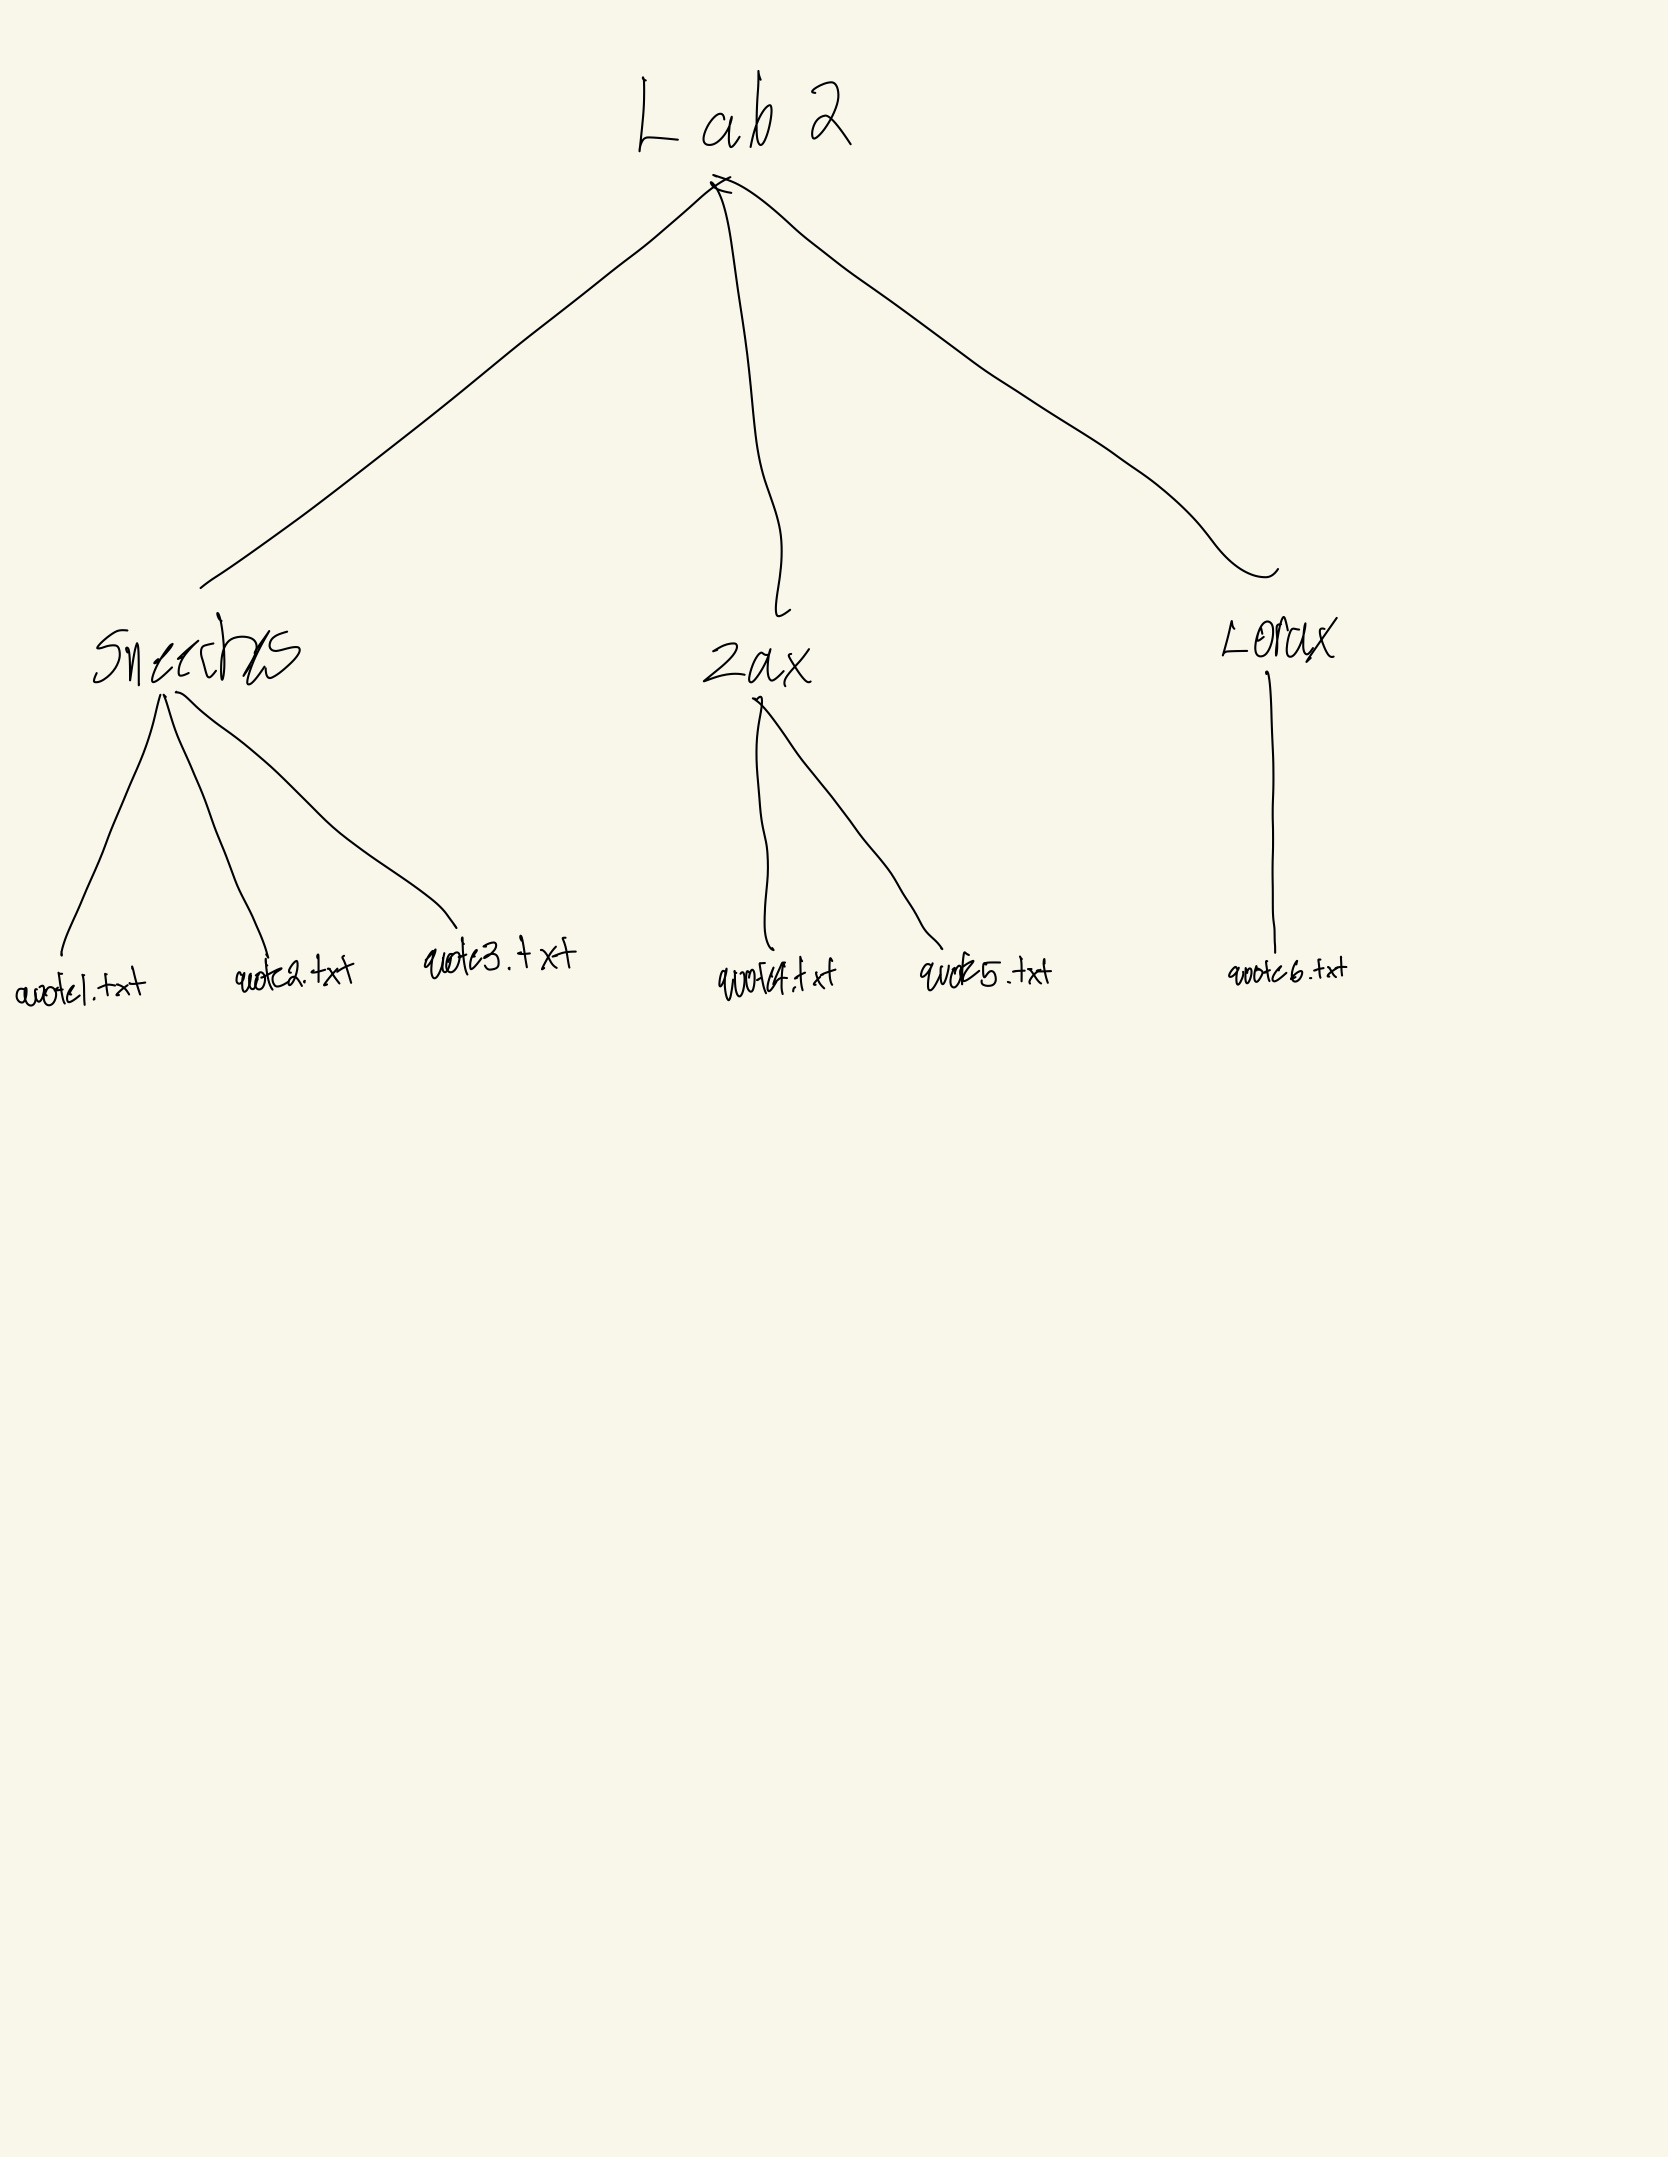 Lab 2
Sneeches
Zax
Lorax
quote1.txt
quote2.txt
quote3.txt
quote4.txt
quote5.txt
quote6.txt